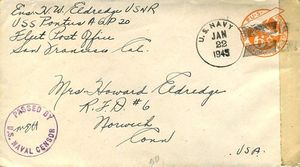 Ens. H. W. Eldredge USNR
USS Pontus AGP 20
Fleet Post Office
San Francisco Cal.
U.S. NAVY
JAN
22
1945
Mrs. Howard Eldredge
R.F.D #6
Norwich
Conn
USA.
PASSED BY
U.S. NAVAL CENSOR